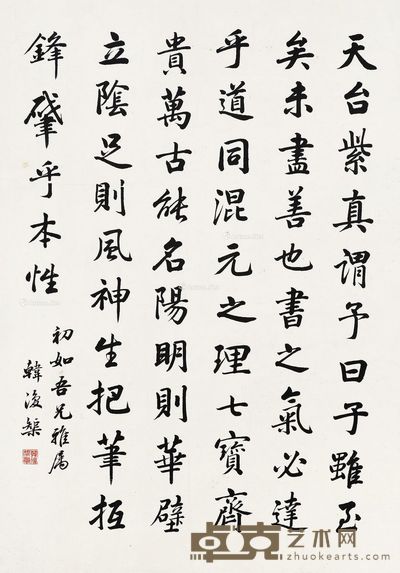 天台紫真謂予曰子雖至
矣未盡善也書之氣必達
乎道同混元之理七寶齊
貴萬古能名陽明則華壁
立陰足則風神生把筆抵
鋒肇乎本性
初如吾兄雅屬
韓復榘
卓克艺术网
zhuokearts.com